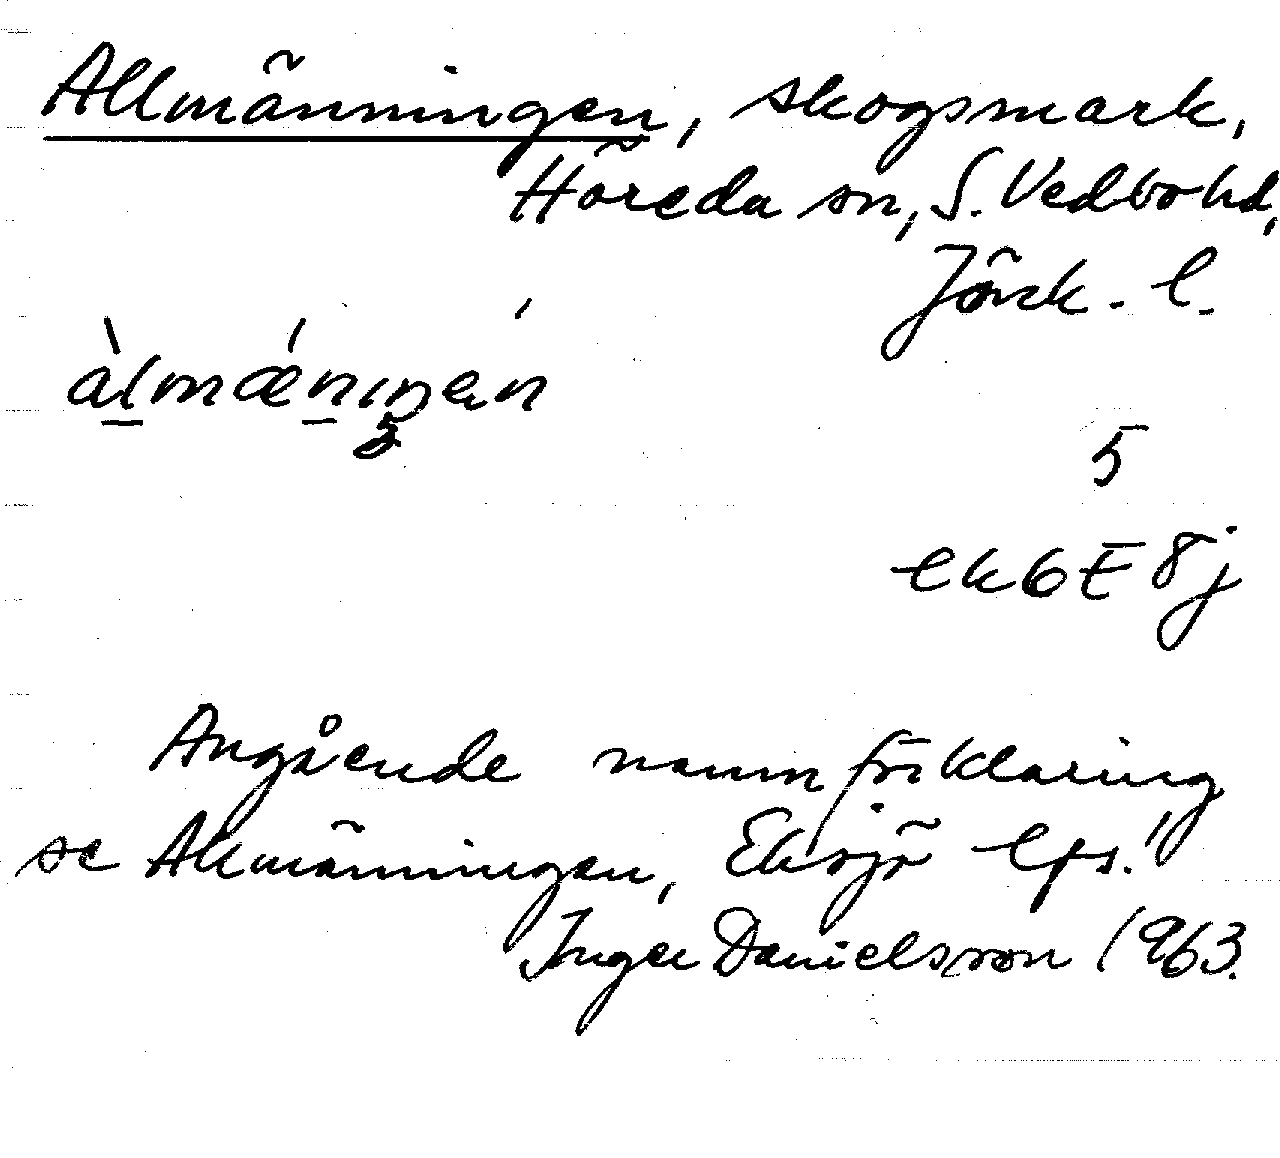 Allmänningen, skogsmark,
Höreda sn, S. Vedbo hd,
Jönk. l.
àlmæ̀nıŋen
5
ek 6 E 8 j
Angående namnförklaring
se Allmänningen, Eksjö lfs.!
Inger Danielsson 1963.